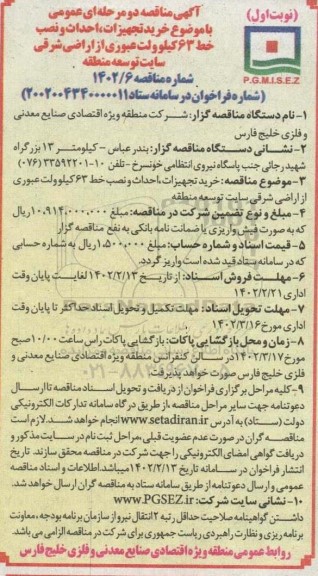 (نوبت اول)
آگهی مناقصه دو مرحله ای عمومی
با موضوع خرید تجهیزات، احداث و نصب
خط ۶۳ کیلو ولت عبوری از اراضی شرقی
سایت توسعه منطقه
P.G.M.I.S.E.Z
شماره مناقصه ۱۴۰۲/۶
(شماره فراخوان در سامانه ستاد ۲۰۰۲۰۰۴۳۴۰۰۰۰۰۱۱)
۱- نام دستگاه مناقصه گزار: شرکت منطقه ویژه اقتصادی صنایع معدنی
و فلزی خلیج فارس
۲- نشانی دستگاه مناقصه گزار: بندر عباس - کیلومتر ۱۳ بزرگراه
شهید رجائی جنب پاسگاه نیروی انتظامی خونسرخ - تلفن ۱۰-۳۳۵۹۲۲۰۱ (۰۷۶)
۳- موضوع مناقصه: خرید تجهیزات، احداث و نصب خط ۶۳ کیلو ولت عبوری
از اراضی شرقی سایت توسعه منطقه
۴- مبلغ و نوع تضمین شرکت در مناقصه: مبلغ ۱۰,۹۱۴,۰۰۰,۰۰۰ ریال
که به صورت فیش واریزی یا ضمانت نامه بانکی به نفع مناقصه گزار
۵- قیمت اسناد و شماره حساب: مبلغ ۱,۵۰۰,۰۰۰ ریال به شماره حسابی
که در سامانه ستاد قید شده است واریز گردد.
۶- مهلت فروش اسناد: از تاریخ ۱۴۰۲/۲/۱۳ لغایت پایان وقت
اداری ۱۴۰۲/۲/۲۱
۷- مهلت تحویل اسناد: مهلت تکمیل و تحویل اسناد حداکثر تا پایان وقت
اداری مورخ ۱۴۰۲/۳/۱۶
۸- زمان و محل بازگشایی پاکات: بازگشایی پاکات راس ساعت ۱۰/۰۰ صبح
مورخ ۱۴۰۲/۳/۱۷ در سالن کنفرانس منطقه ویژه اقتصادی صنایع معدنی و
فلزی خلیج فارس صورت خواهد پذیرفت.
۹- کلیه مراحل برگزاری فراخوان از دریافت و تحویل اسناد مناقصه تا ارسال
دعوتنامه جهت سایر مراحل مناقصه، از طریق درگاه سامانه تدارکات الکترونیکی
دولت (ستاد) به آدرس www.setadiran.ir انجام خواهد شد. لازم است
مناقصه گران در صورت عدم عضویت قبلی، مراحل ثبت نام در سایت مذکور و
دریافت گواهی امضای الکترونیکی را جهت شرکت در مناقصه محقق سازند. تاریخ
انتشار فراخوان در سامانه تاریخ ۱۴۰۲/۲/۱۳ میباشد اطلاعات و اسناد مناقصه
عمومی و ارسال دعوتنامه از طریق سامانه ستاد به مناقصه گران ارسال خواهد شد.
۱۰- نشانی سایت شرکت: www.PGSEZ.ir
داشتن گواهینامه صلاحیت حداقل رتبه ۲ انتقال نیرو از سازمان برنامه بودجه، معاونت
برنامه ریزی و نظارت راهبردی ریاست جمهوری برای شرکت در مناقصه الزامی می باشد.
روابط عمومی منطقه ویژه اقتصادی صنایع معدنی و فلزی خلیج فارس